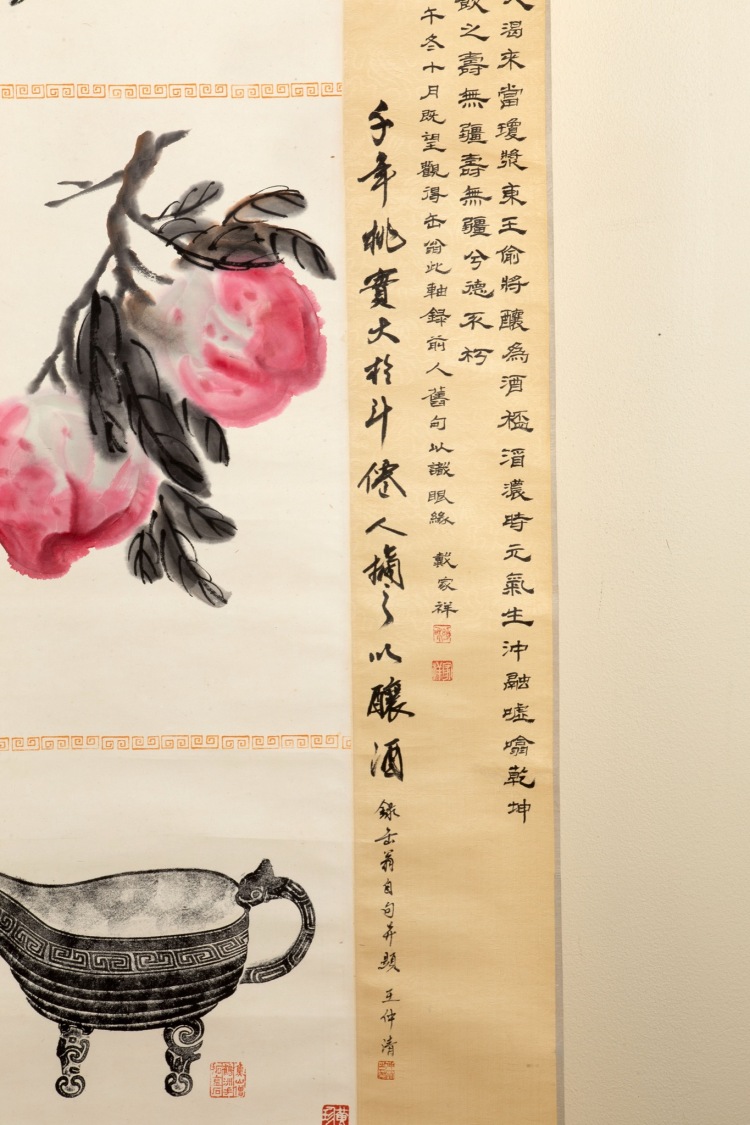 渴來當瓊漿東王偷將釀為酒榼湑濃時元氣生沖融噓噏乾坤
飲之壽無疆壽無疆兮德不朽
午冬十月既望觀得缶翁此軸錄前人舊句以識眼緣 戴家祥
千年桃實大於斗僊人摘之以釀酒
錄缶翁自句并題 王仲清